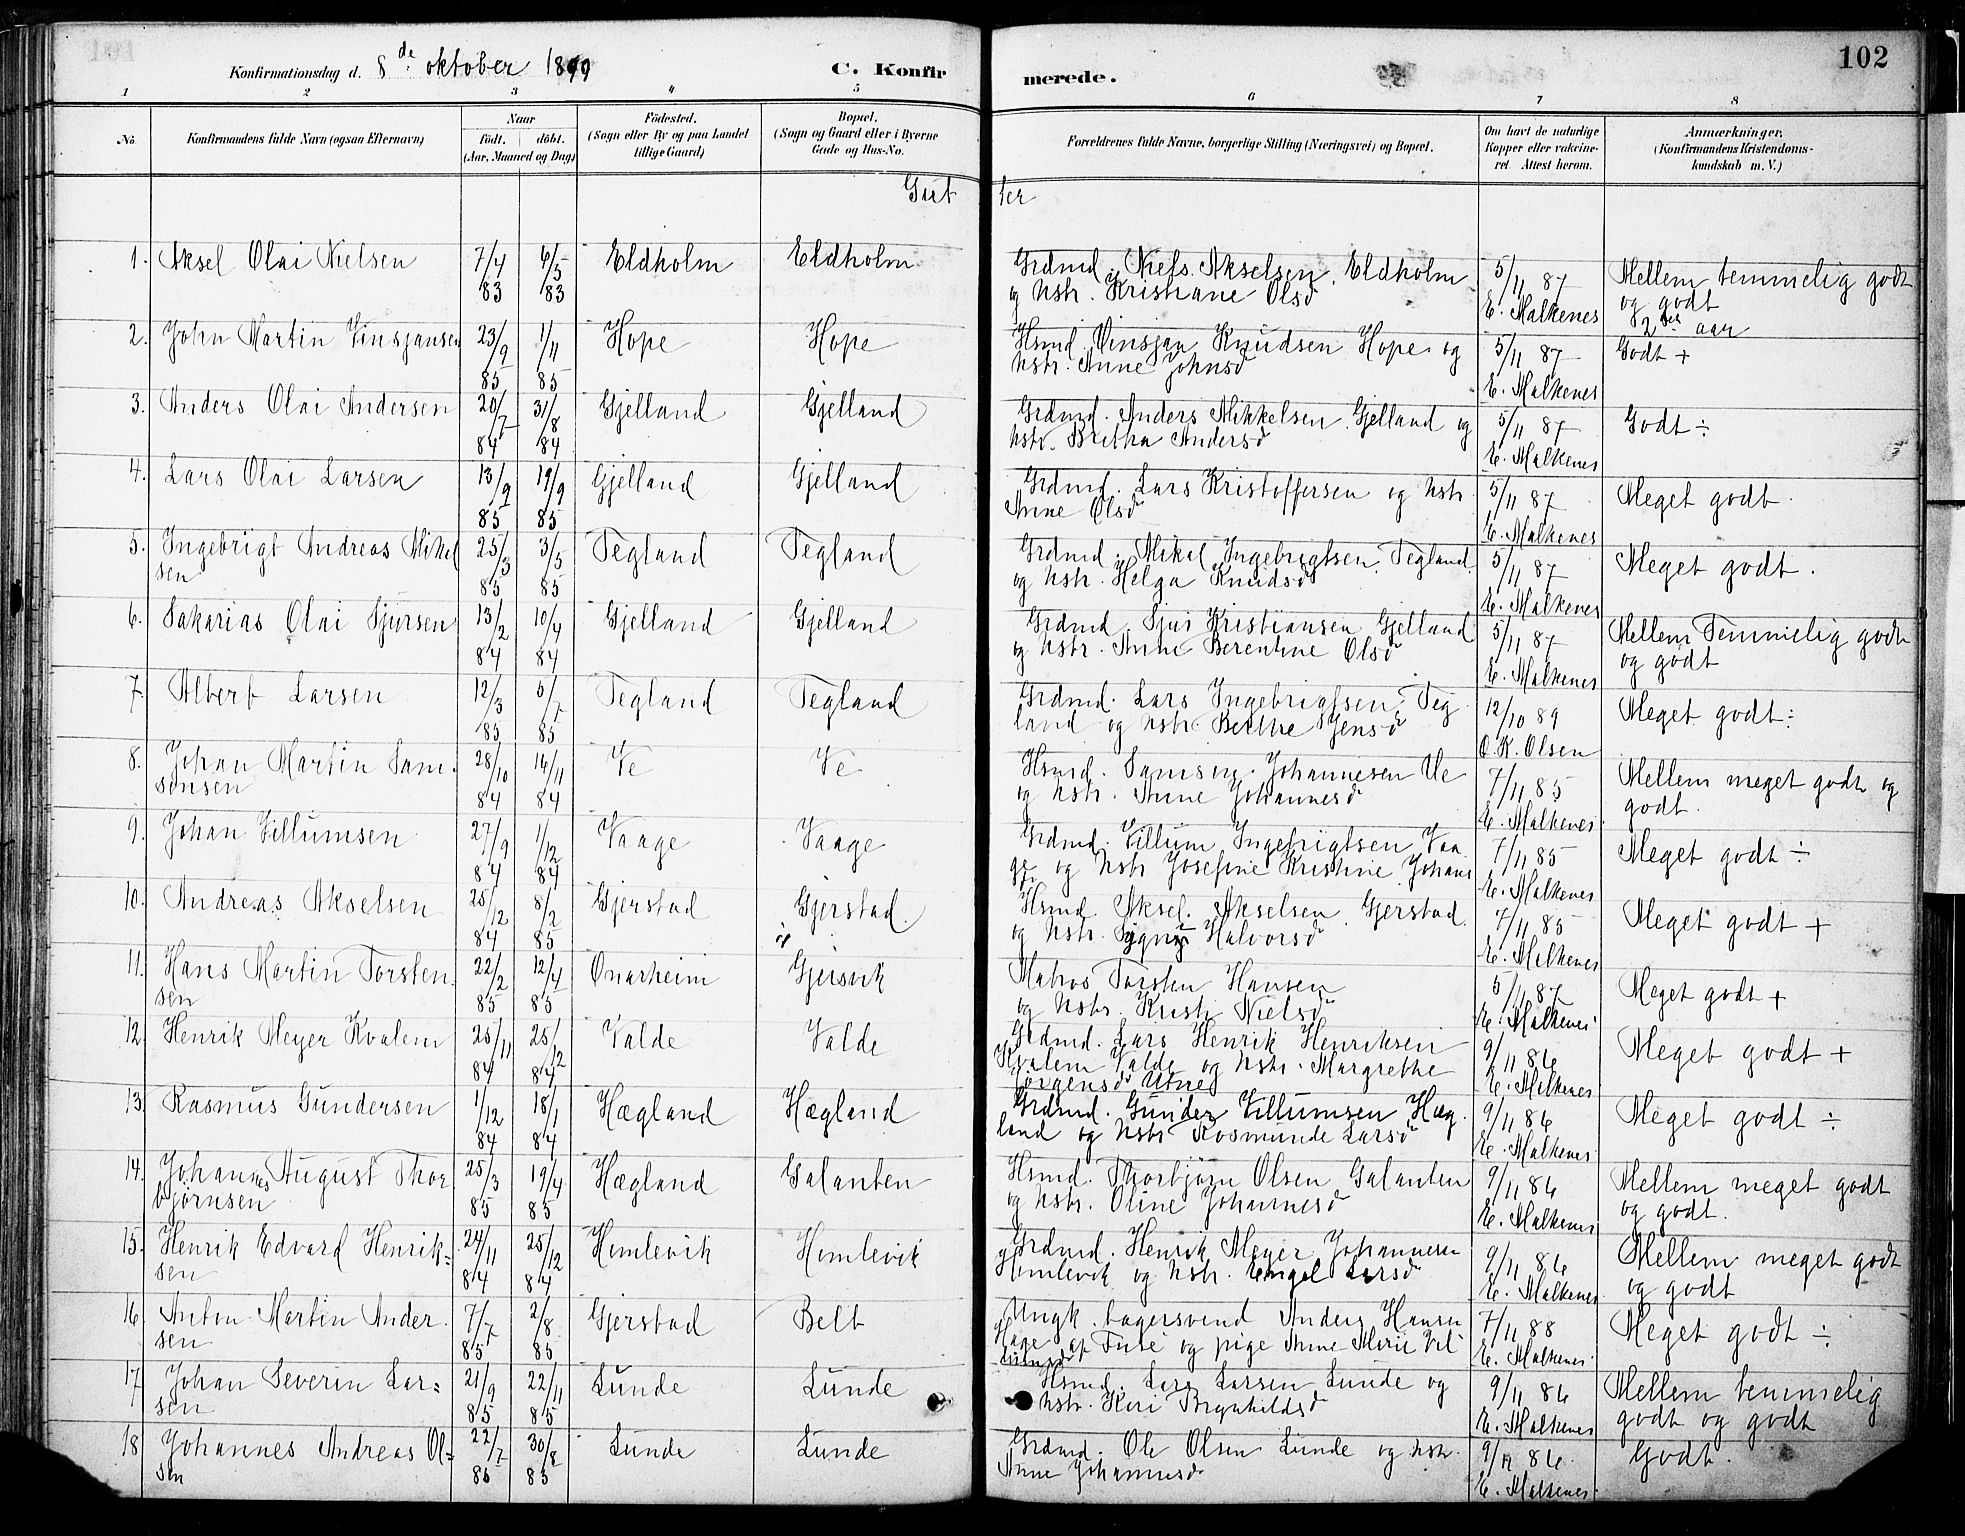 102
Konfirmationsdag d. 8de oktober 1899
C. Konfirmerede.
1 2 3 4 5 6 7 8
No. Konfirmandens fulde Navn (ogsaa Efternavn) Naar födt. döbt. (Aar, Maaned og Dag) Födested. (Sogn eller By og paa Landet tillige Gaard) Bopæl. (Sogn og Gaard eller i Byerne Gade og Hus-No. Forældrenes fulde Navne, borgerlige Stilling (Næringsvei) og Bopæl. Om havt de naturlige Kopper eller vakcineret Attest herom. Anmærkninger, (Konfirmandens Kristendomskundskab m. V.)
Gutter
1. Aksel Olai Nielsen 7/4 83 6/5 83 Eldholm Eldholm Grdmd. Niels Akselsen, Eldholm og hstr. Kristiane Olsd 5/11 87 E. Malkenes Mellem temmelig godt og godt 2det aar
2. John Martin Vinsjansen 23/9 85 1/11 85 Hope Hope Hsmd. Vinsjan Knudsen Hope og hstr. Anne Johnsd 5/11 87 E. Malkenes Godt +
3. Anders Olai Andersen 20/7 84 31/8 84 Gjelland Gjelland Grdmd. Anders Mikkelsen Gjelland og hstr. Britha Andersd 5/11 87 E. Malkenes Godt ÷
4. Lars Olai Larsen 13/9 85 19/9 85 Gjelland Gjelland Grdmd. Lars Kristoffersen og hstr. Anne Olsd 5/11 87 E. Malkenes Meget godt.
5. Ingebrigt Andreas Mikelsen 25/3 85 3/5 85 Tegland Tegland Grdmd. Mikal Ingebrigtsen, Tegland og hstr. Helga Knudsd 5/11 87 E. Malkenes Meget godt.
6. Sakarias Olai Sjursen 13/2 84 10/4 84 Gjelland Gjelland Grdmd. Sjur Kristiansen Gjelland og hstr. Anne Berentine Olsd 5/11 87 E. Malkenes Mellem Temmelig godt og godt
7. Albert Larsen 12/3 85 5/7 85 Tegland Tegland Grdmd. Lars Ingebrigtsen Tegland og hstr. Berthe Jensd 12/10 89 O. K. Olsen Meget godt ÷
8. Johan Martin Samsonsen 28/10 84 16/11 84 Ve Ve Hsmd. Samson Johannesen Ve og hstr. Anne Johannesd 7/11 85 E. Malkenes Mellem meget godt og godt.
9. Johan Villumsen 27/9 84 1/12 84 Vaage Vaage Grdmd. Villum Ingebrigtsen Vaage og hstr Josefine Kristine Johans 7/11 85 E. Malkenes Meget godt ÷
10. Andreas Akselsen 25/12 84 8/2 85 Gjerstad Gjerstad. Hsmd. Aksel Akselsen Gjerstad og hstr. Signy Halvorsd 7/11 85 E. Malkenes Meget godt +
11. Hans Martin Torstensen 22/2 85 12/4 85 Onarheim Gjersvik Matros Torsten Hansen og hstr. Kristi Nielsd 5/11 87 E. Malkenes Meget godt +
12. Henrik Meyer Kvalem 25/11 84 25/12 84 Valde Valde Grdmd. Lars Henrik Henriksen Kvalem Valde og hstr. Margrethe Jörgensd Utne 9/11 86 E. Malkenes Meget godt +
13. Rasmus Gundersen 1/12 84 18/1 84 Hægland Hægland Grdmd. Gunder Villumsen Hægland og hstr Rosmunde Larsd 9/11 86 E. Malkenes Meget godt ÷
14. Johannes August Thorbjörnsen 25/3 85 19/4 85 Hægland Galanten Hsmd. Thorbjörn Olsen Galanten og hstr. Oline Johannesd 9/11 86 E. Malkenes Mellem meget godt og godt.
15. Henrik Edvard Henriksen 24/11 84 25/12 84 Homlevik Homlevik Grdmd. Henrik Meyer Johannesen Homlevik og hstr. Engel Larsd 9/11 86 E. Malkenes Mellem meget godt og godt
16. Anton Martin Andersen 7/7 85 2/8 85 Gjerstad Belt Ungk. bagersvend Anders Hansen Hage af Fuse og pige Anne Marie Villumsd 7/11 88 E. Malkenes Meget godt ÷
17. Johan Severin Larsen 21/9 85 22/11 85 Lunde Lunde Hsmd. Lars Larsen Lunde og hstr. Kari Brynhildsd 9/11 86 E. Malkenes Mellem temmelig godt og godt
18. Johannes Andreas Olsen 22/7 85 30/8 85 Lunde Lunde Grdmd. Ole Olsen Lunde og hstr. Anne Johannesd 9/11 86 E. Malkenes Godt.